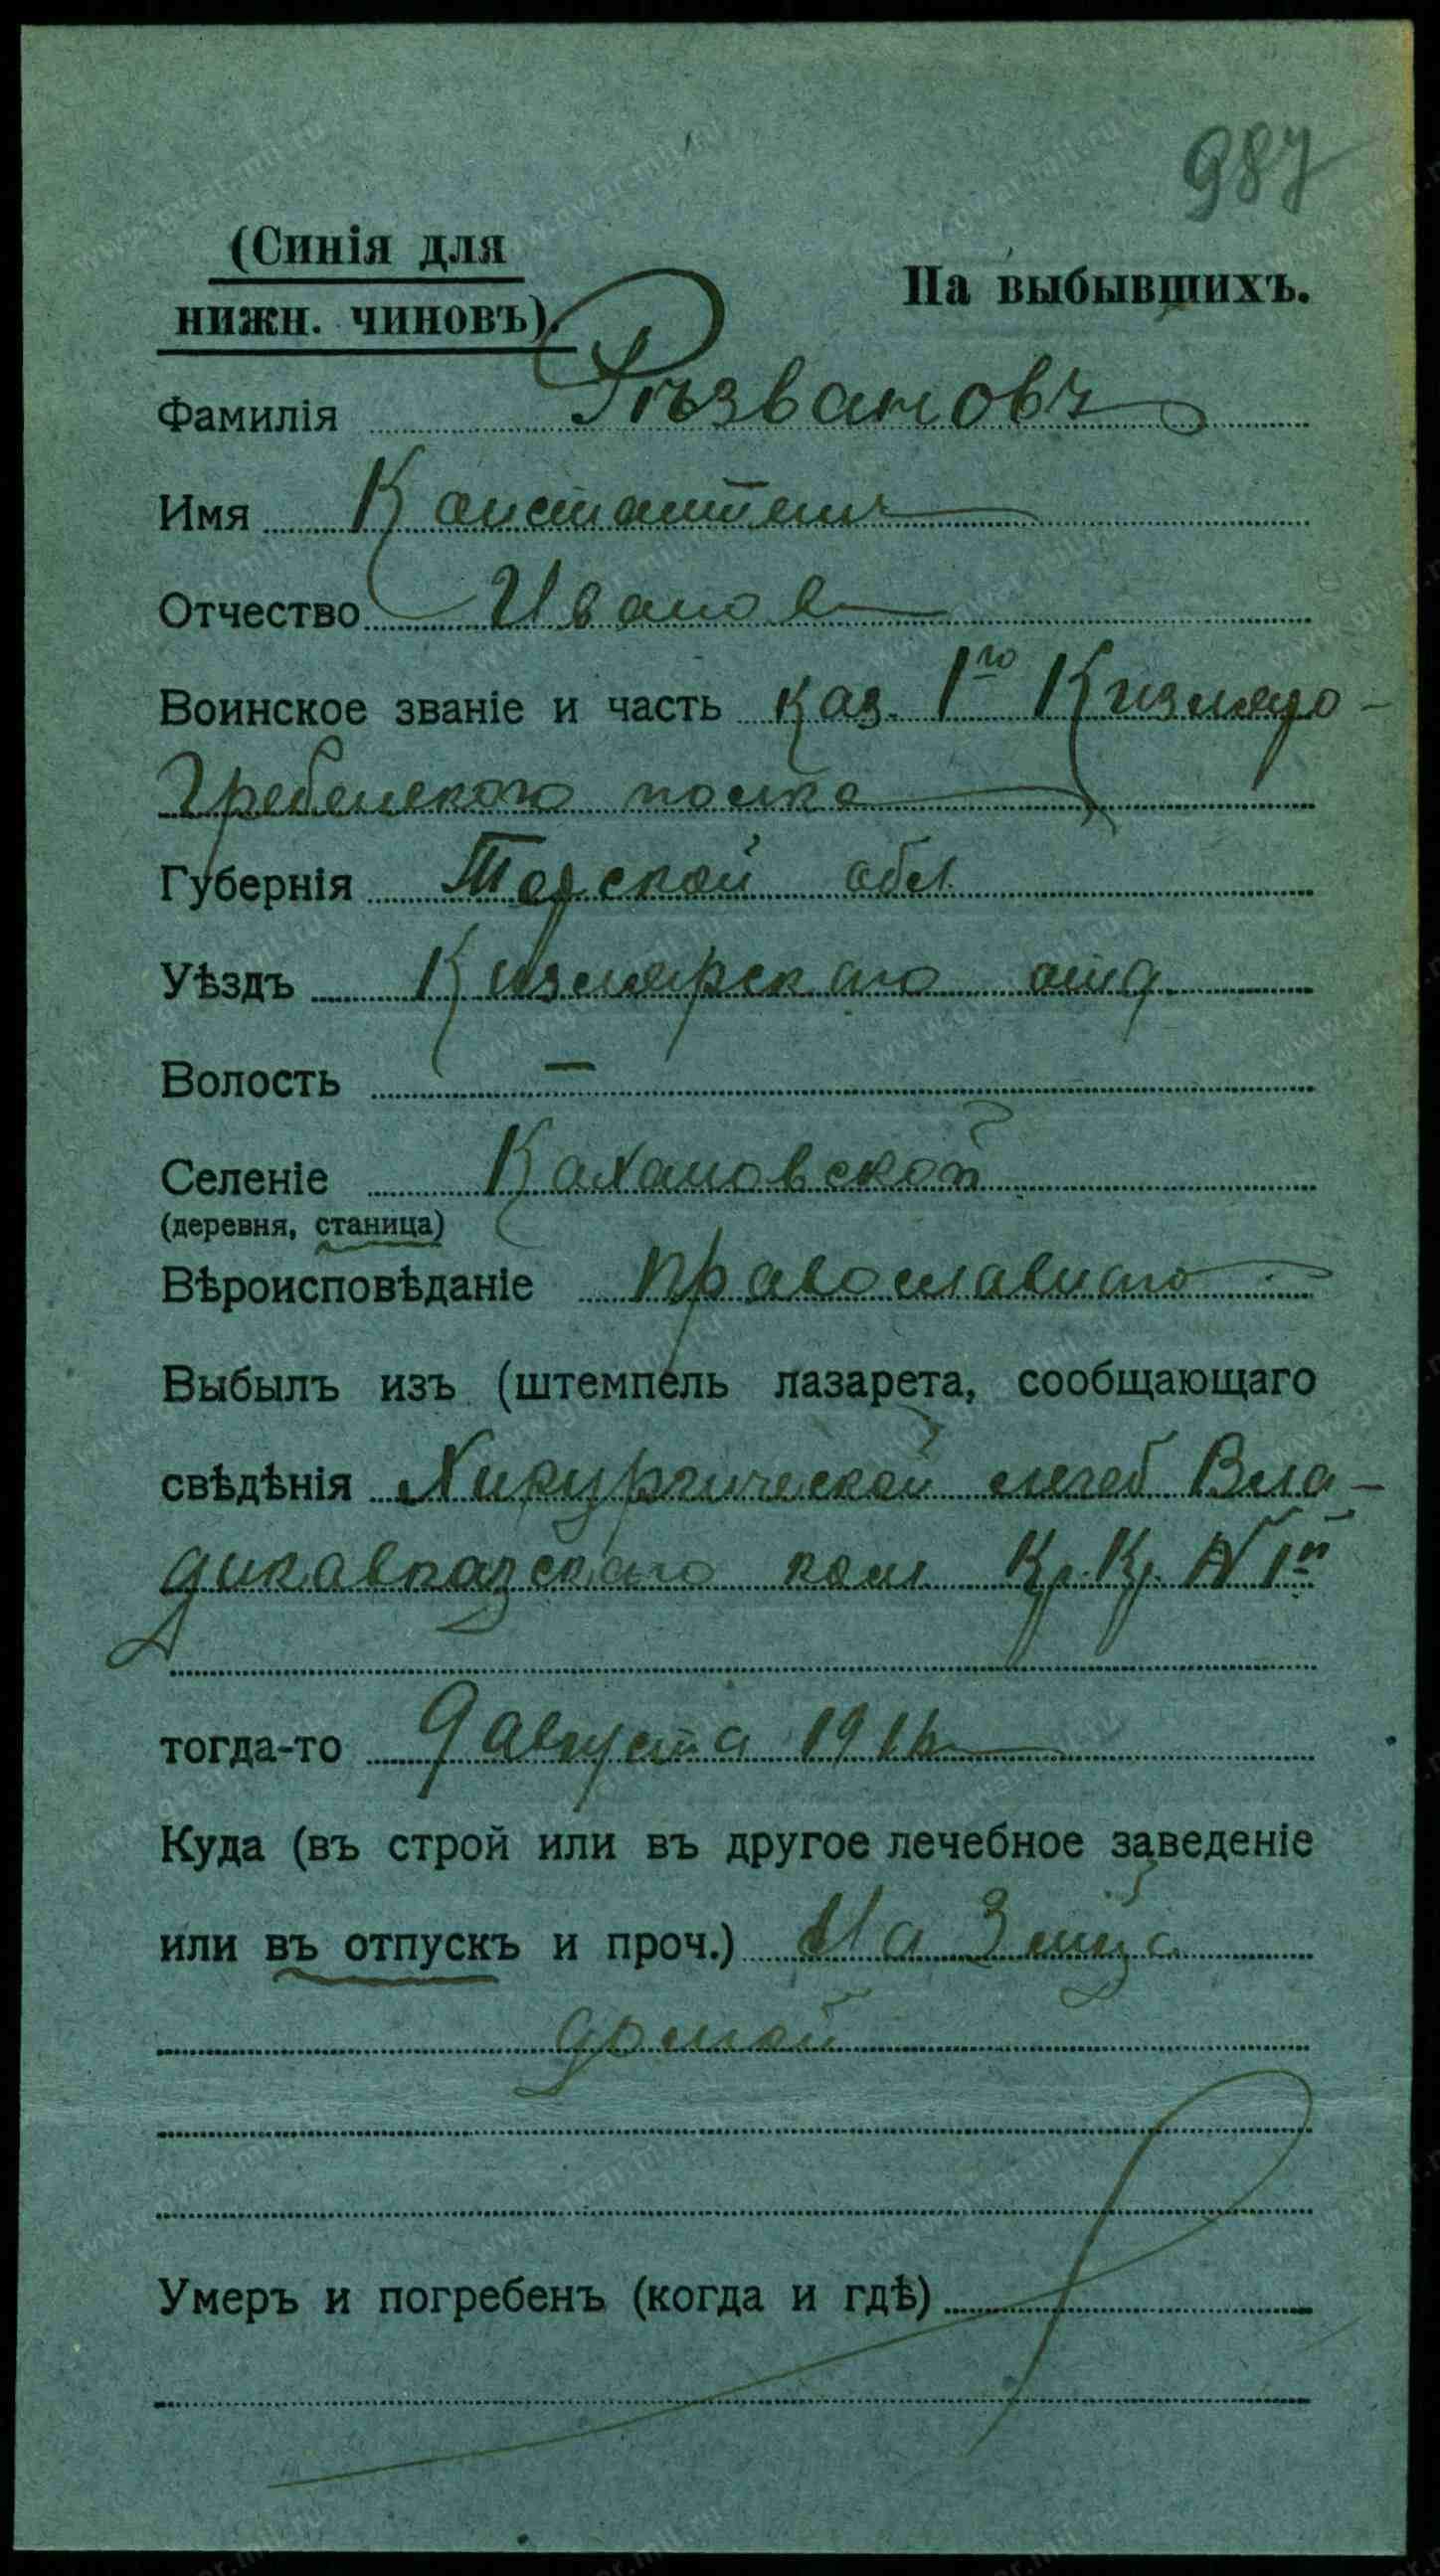 987
(Синія для
нижн. чиновъ).
На выбывшихъ.
Фамилія Рѣзвановъ
Имя Константинъ
Отчество Иванов
Воинское званіе и часть каз. 1го Кизляро-
Гребенского полка
Губернія Терской обл.
Уѣздъ Кизлярскаго отд.
Волость —
Селеніе Кахановской
(деревня, станица)
Вѣроисповѣданіе православнаго
Выбылъ изъ (штемпель лазарета, сообщающаго
свѣдѣнія Хирургической лечеб Вла-
дикавказскаго ком. Кр. Кр. № 1й
тогда-то 9 августа 1916
Куда (въ строй или въ другое лечебное заведеніе
или въ отпускъ и проч.) На 3 мѣс.
домой
Умеръ и погребенъ (когда и гдѣ)
www.gwar.mil.ru